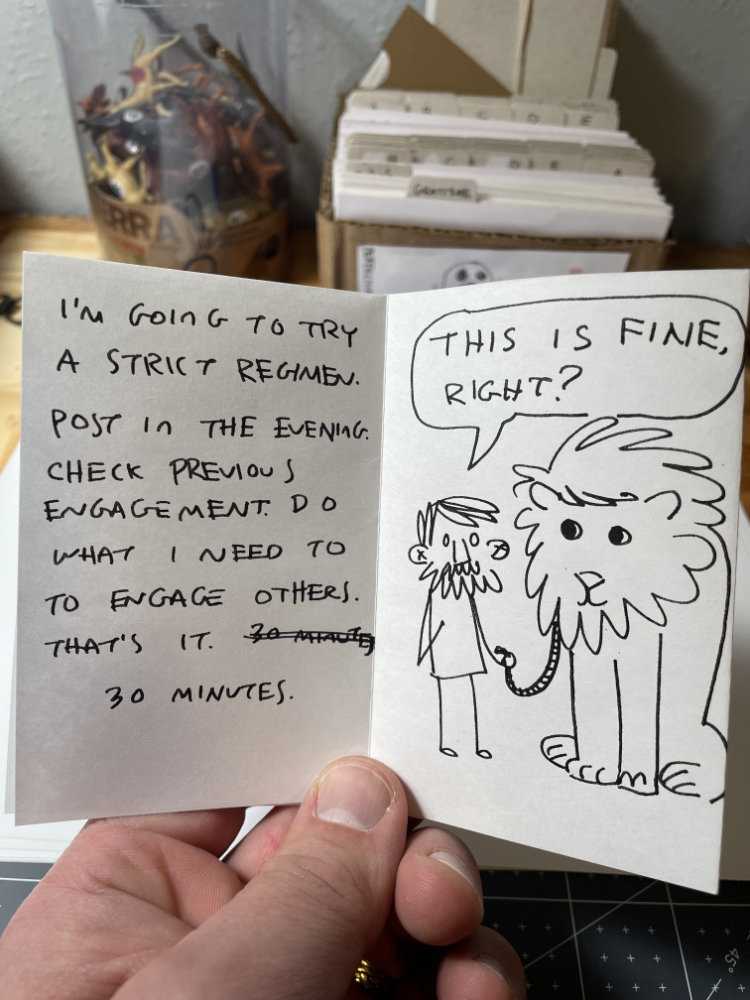 I'M GOING TO TRY
A STRICT REGIMEN.
POST IN THE EVENING.
CHECK PREVIOUS
ENGAGEMENT. DO
WHAT I NEED TO
TO ENGAGE OTHERS.
THAT'S IT. 30 MINUTES
30 MINUTES.
THIS IS FINE,
RIGHT?
45°